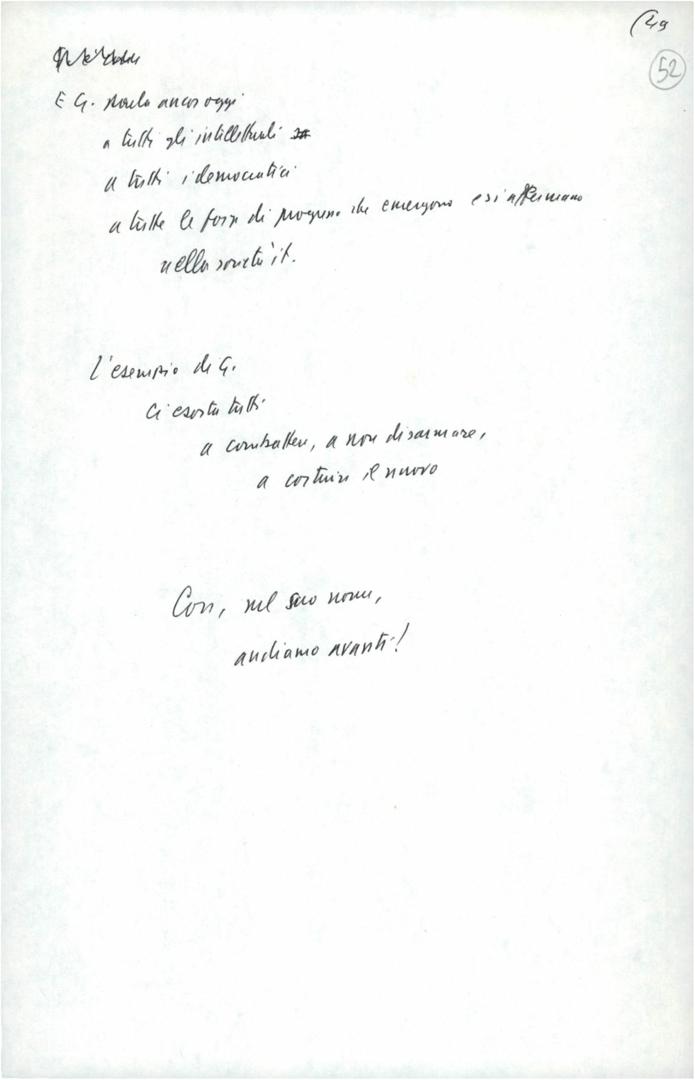 (49
52
E G. parla ancor oggi
a tutti gli intellettuali
a tutti i democratici
a tutte le forze di progresso che emergono e si affermano
nella società it.
L'esempio di G.
ci esorta tutti
a combattere, a non disarmare,
a costruire il nuovo
Così, nel suo nome,
andiamo avanti!